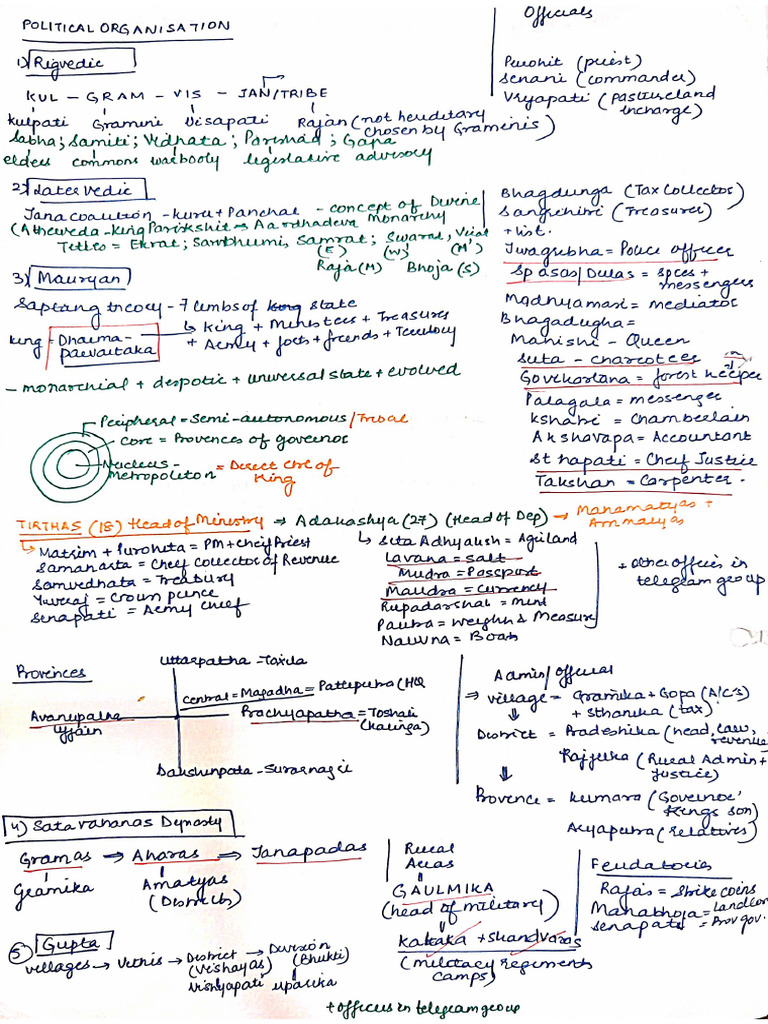 POLITICAL ORGANISATION
Officials
1) Rigvedic
Purohit (priest)
Senani (commander)
Vryapati (Pastureland incharge)
KUL – GRAM – VIS – JAN/TRIBE
Kulpati Gramini Visapati Rajan (not hereditary chosen by Graminis)
Sabha; Samiti; Vidhata; Parishad; Gana
elders commons warbooly legislative advisory
2) Later vedic
Jana coalition - kuru + Panchal - concept of Divine Monarchy
(Atherveda - king Parikshit → Aardhadeva
Tetles = Ekrat; Sambhumi, Samrat; Swarat, Virat
(E) (W) (M')
Raja (M) Bhoja (S)
Bhagdunga (Tax Collector)
Sangrihiri (Treasurer)
+ list.
Jivagrubha = Police officer
Spasas/Dutas = spies + messengers
Madhyamasi = mediator
Bhagadugha =
Mahishi - Queen
Suta - charcotees
Govikartana = forest keeper
Palagala = messenger
Kshatri = Chamberlain
Akshavapa = Accountant
Sthapati = Cheif Justice
Takshan = Carpenter.
3) Mauryan
Saptang theory - 7 limbs of king state
king = Dharma-pavartaka
→ King + Ministers + Treasures
+ Army + forts + friends + Territory
- monarchial + despotic + universal state + evolved
Peripheral = Semi-autonomous/Tribal
Core = Provences of governor
Nucleus - Metropoliton = Direct Ctrl of King
TIRTHAS (18) Head of Ministry → Adakashya (27) (Head of Dep) → Mahamatyas + Ammatyas
Matrim + Purohita = PM + Cheif Priest
Samaharta = Cheif Collector of Revenue
Samvedhata = Treasury
Yuvraj = Crown prince
Senapati = Army chief
Sita Adhyaksh = Agriland
Lavana = Salt
Mudra = Passport
Maudra = currency
Rupadarshak = mint
Pautra = weights & Measure
Navvna = Boats
+ other offices in telegram group
Provences
Uttarpatha - Taxila
Central = Magadha = Patliputra (HQ
Avantipatha
Ujjain
Prachyapatha = Toshali (Kalinga)
Dakshinpata - Suvarnagiri
Admin/official
⇒ village = Gramika + Gopa (A/C's)
+ Sthanika (tax)
District = Pradeshika (head, law, revenue
Rajjuka (Rural Admin + justice)
Provence = Kumara (Governor' kings son)
Aryaputra (relatives)
4) Satavahanas Dynasty
Gramas → Aharas → Janapadas
Gramika Amatyas
(Districts)
Rural Areas
GAULMIKA
(head of military)
Kataka + Skandvaras
(military regiments camps)
Feudatories
Rajas = strike coins
Mahabhoja = Landlord
Senapati = Prov gov.
5) Gupta
villages → Vithis → District (Vishayas) → Division (Bhukti)
Vishyapati uparika
+ officers in telegram group